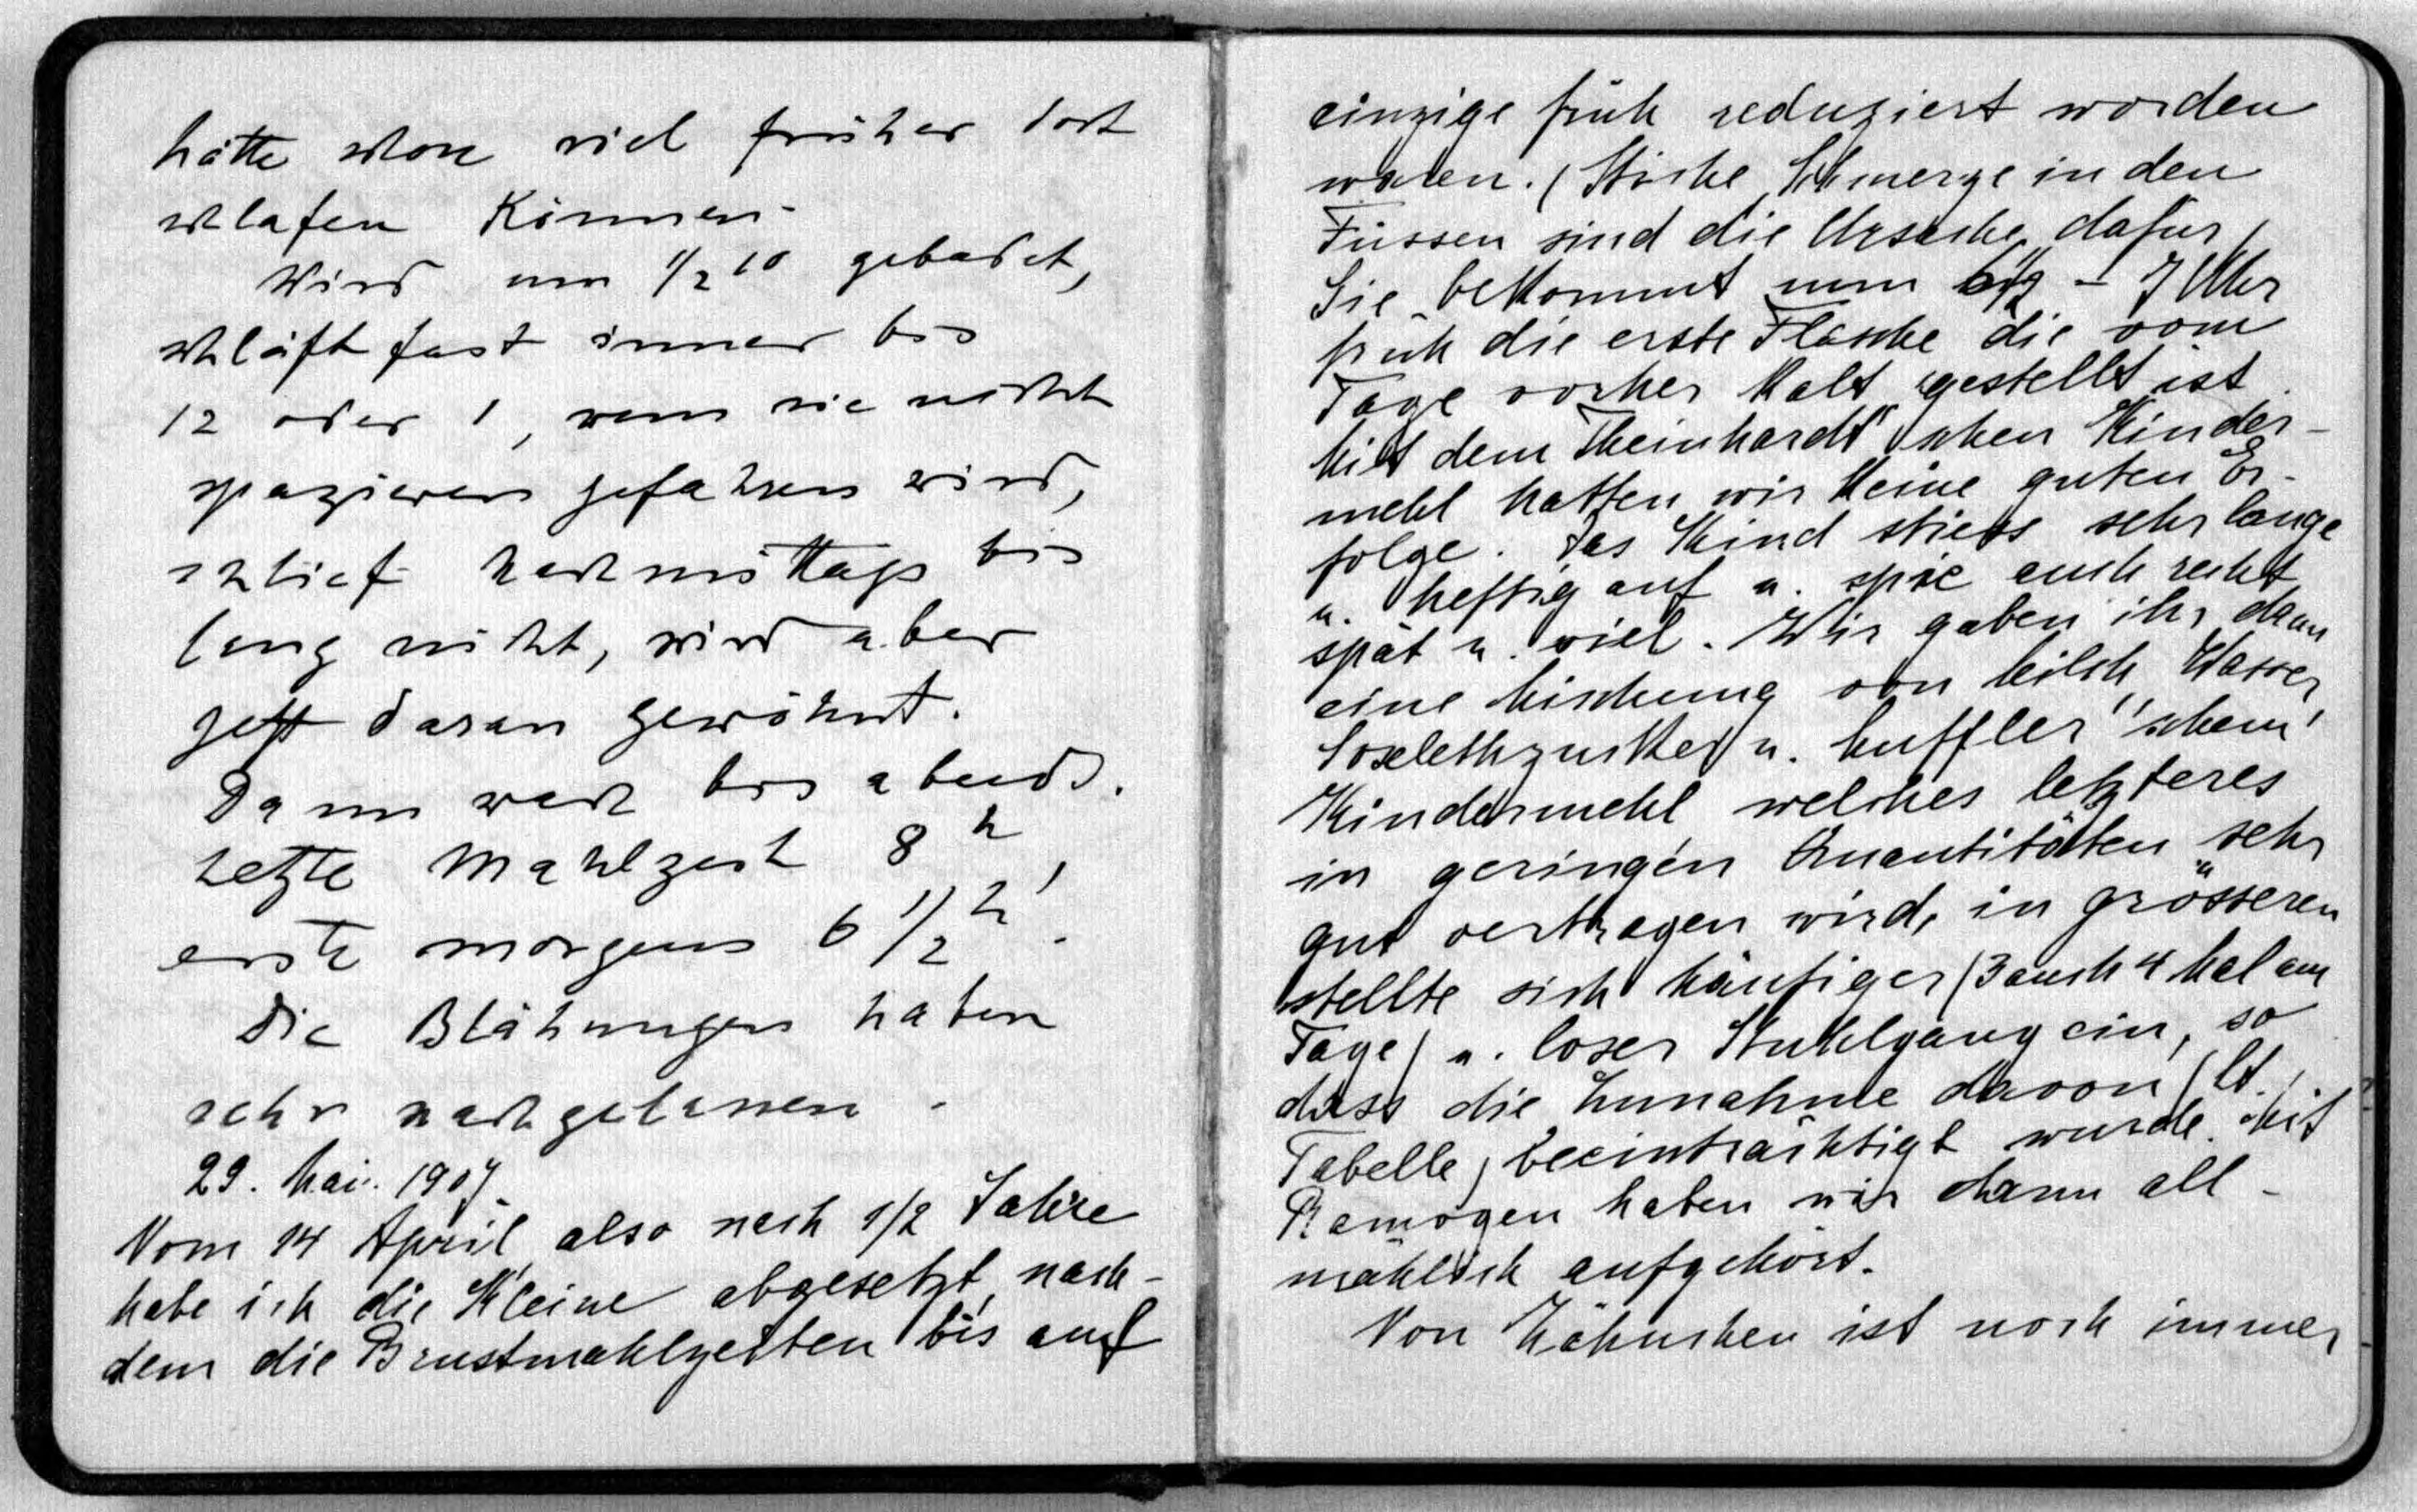 hätte schon viel früher dort
schlafen können.
Wird um 1/2 10 gebadet,
schläft fast immer bis
12 oder 1, wenn sie nicht
spazieren gefahren wird,
schlief nachmittags bis
lang nicht, wird aber
jetzt daran gewöhnt.
Dann wach bis abends.
Letzte Mahlzeit 8 h,
erste morgens 6 1/2 h.
Die Blähungen haben
sehr nachgelassen.
29. Mai. 1907.
Vom 14 April also nach 1/2 Jahre
habe ich die Kleine abgesetzt, nach-
dem die Brustmahlzeiten bis auf
einzige früh reduziert worden
waren. (Starke Schmerze in den
Füssen sind die Ursache dafür)
Sie bekommt nun 6 1/2 - 7 Uhr
früh die erste Flasche die vom
Tage vorher kalt gestellt ist.
Mit dem Theinhardt'schen Kinder-
mehl hatten wir keine guten Er-
folge. Das Kind stiess sehr lange
u. heftig auf u. spie auch recht
spät u. viel. Wir gaben ihr dann
eine Mischung von Milch Wasser,
Soxlethzucker u. Muffler'schem
Kindermehl welches letzteres
in geringen Quantitäten sehr
gut vertragen wird, in grösseren
stellte sich häufiger (3 auch 4 Mal am
Tage) u. loser Stuhlgang ein, so
dass die Zunahme davon (lt.
Tabelle) beeinträchtigt wurde. Mit
Ramogen haben wir dann all-
mählich aufgehört.
Von Zähnchen ist noch immer